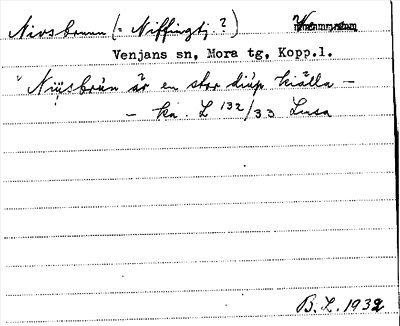 Nivsbrunn (= Niffingtj.?)
Venjans sn, Mora tg, Kopp.l.
"Nijsbrùn är en stor diup kiälla –
– ka. L 132/33 Lusa
B.L. 1932